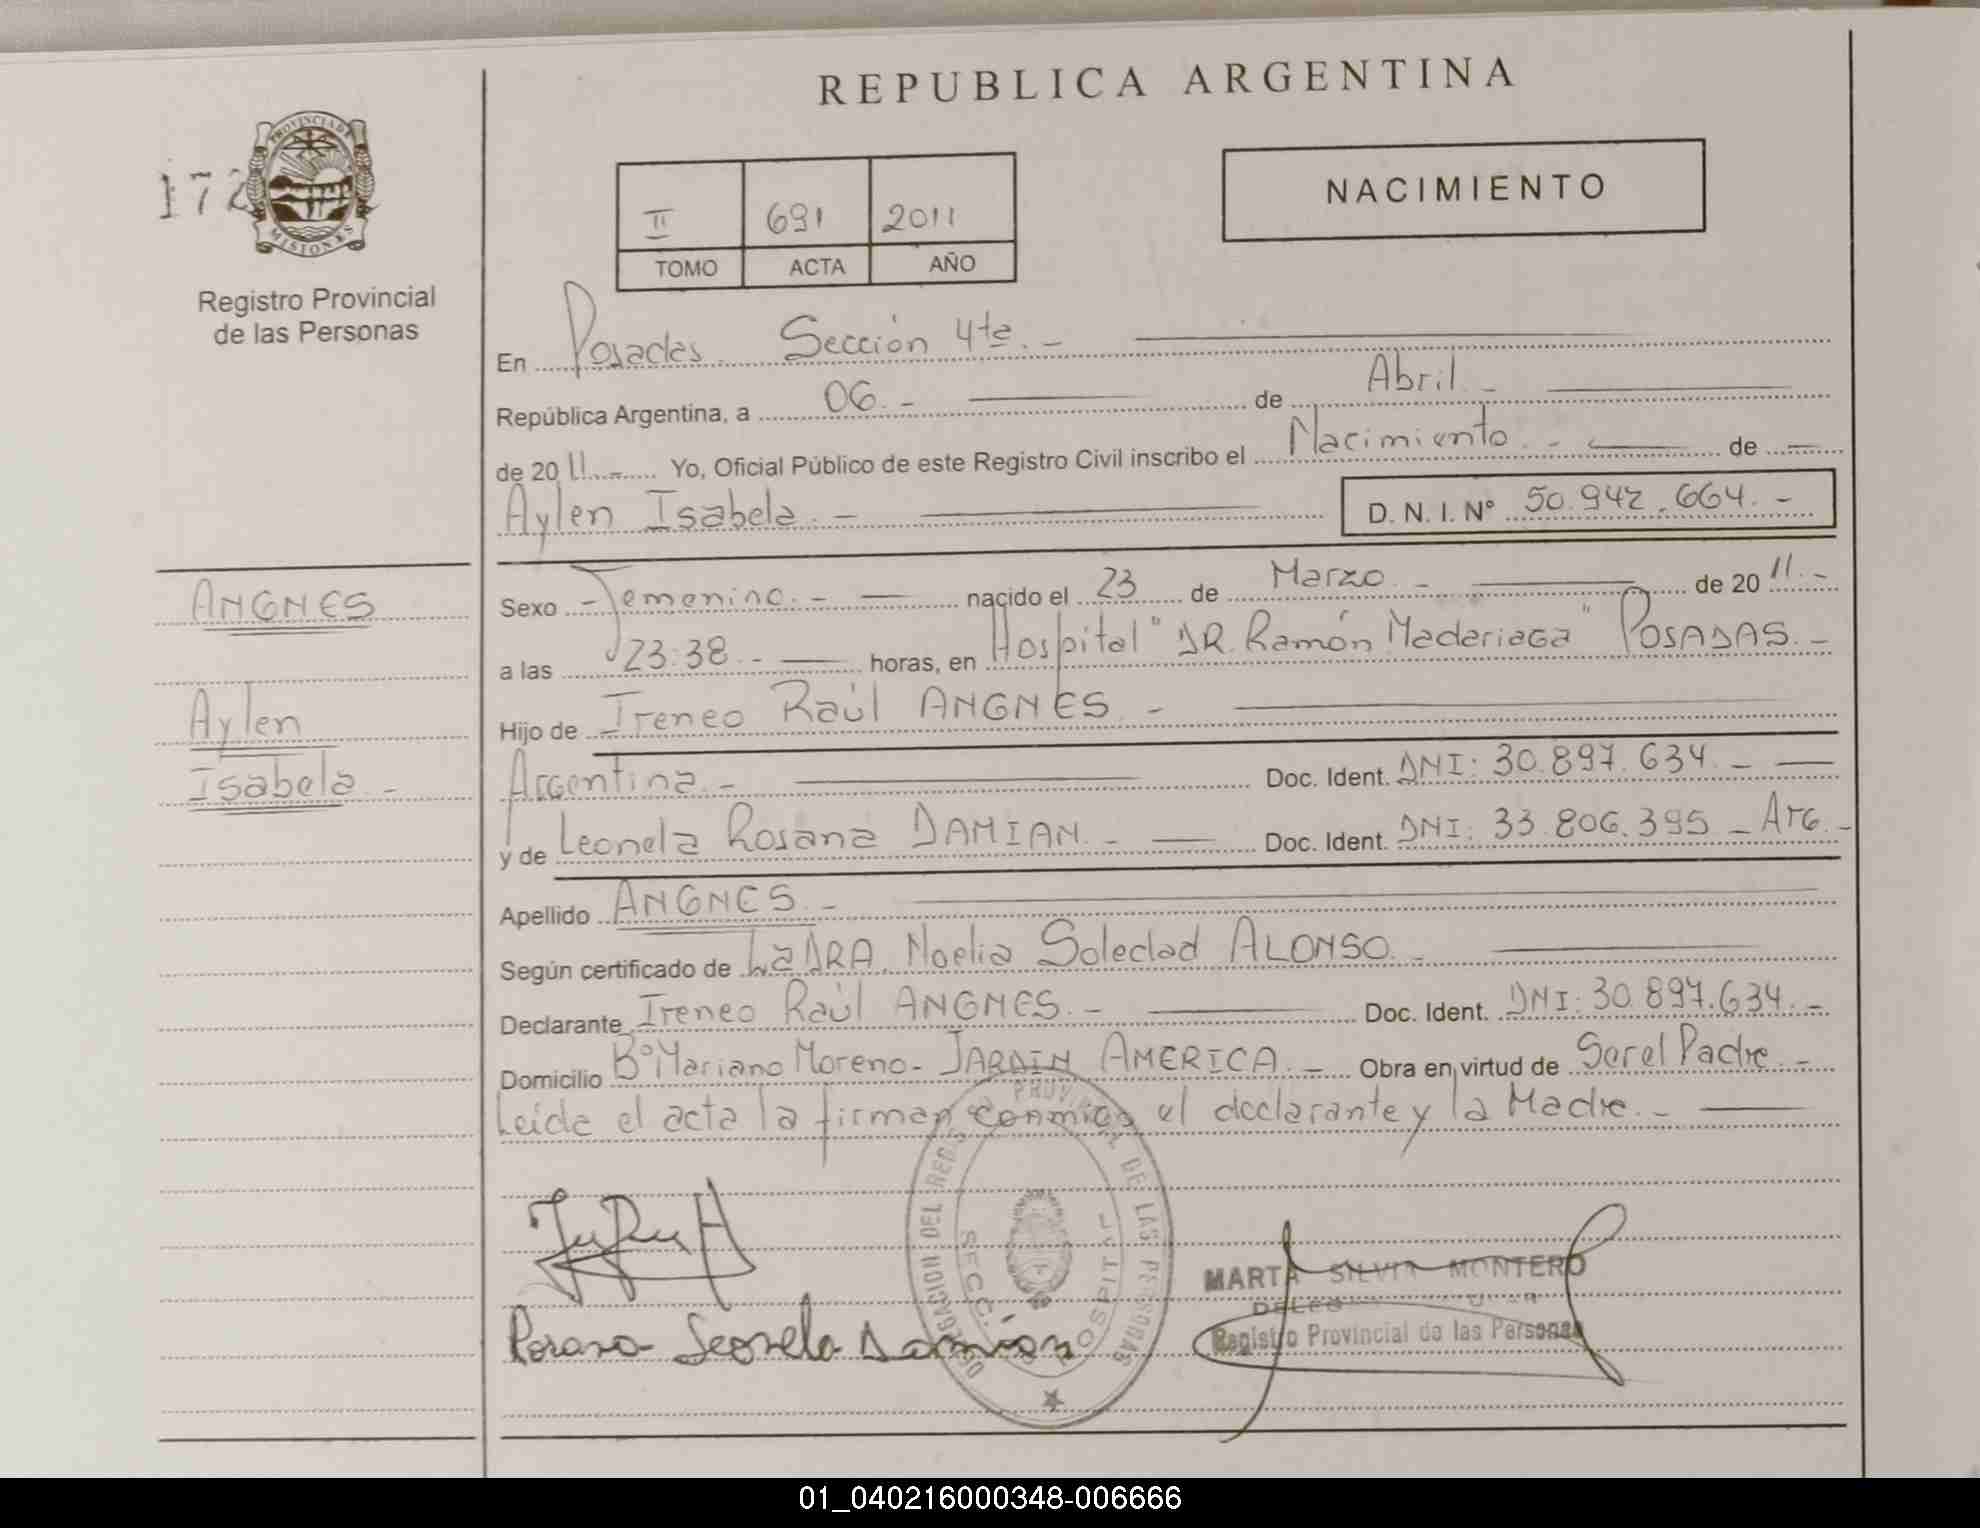 REPUBLICA ARGENTINA
PROVINCIA DE
MISIONES
172
Registro Provincial
de las Personas
II 691 2011
TOMO ACTA AÑO
NACIMIENTO
En Posadas Sección 4ta. -
República Argentina, a 06. - de Abril -
de 2011. - Yo, Oficial Público de este Registro Civil inscribo el Nacimiento. - de -
Aylen Isabela. - D. N. I. Nº 50.942.664. -
ANGNES
Aylen
Isabela -
Sexo - Femenino. - nacido el 23 de Marzo. - de 2011. -
a las 23:38. - horas, en Hospital "DR. Ramón Madariaga" POSADAS. -
Hijo de - Ireneo Raúl ANGNES. -
Argentina. - Doc. Ident. DNI: 30.897.634. -
y de Leonela Rosana DAMIAN. - Doc. Ident. DNI: 33.806.395 - Arg. -
Apellido ANGNES. -
Según certificado de LaDRA. Noelia Soledad ALONSO. -
Declarante Ireneo Raúl ANGNES. - Doc. Ident. DNI: 30.897.634. -
Domicilio Bº Mariano Moreno - JARDIN AMERICA. - Obra en virtud de Ser el Padre. -
Leída el acta la firman conmigo el declarante y la Madre. -
DELEGACION DEL REG. PROVINCIAL DE LAS PERSONAS
SECC. HOSPITAL
Rosana Leonela Damian
MARTA SILVIA MONTERO
Registro Provincial de las Personas
01_040216000348-006666